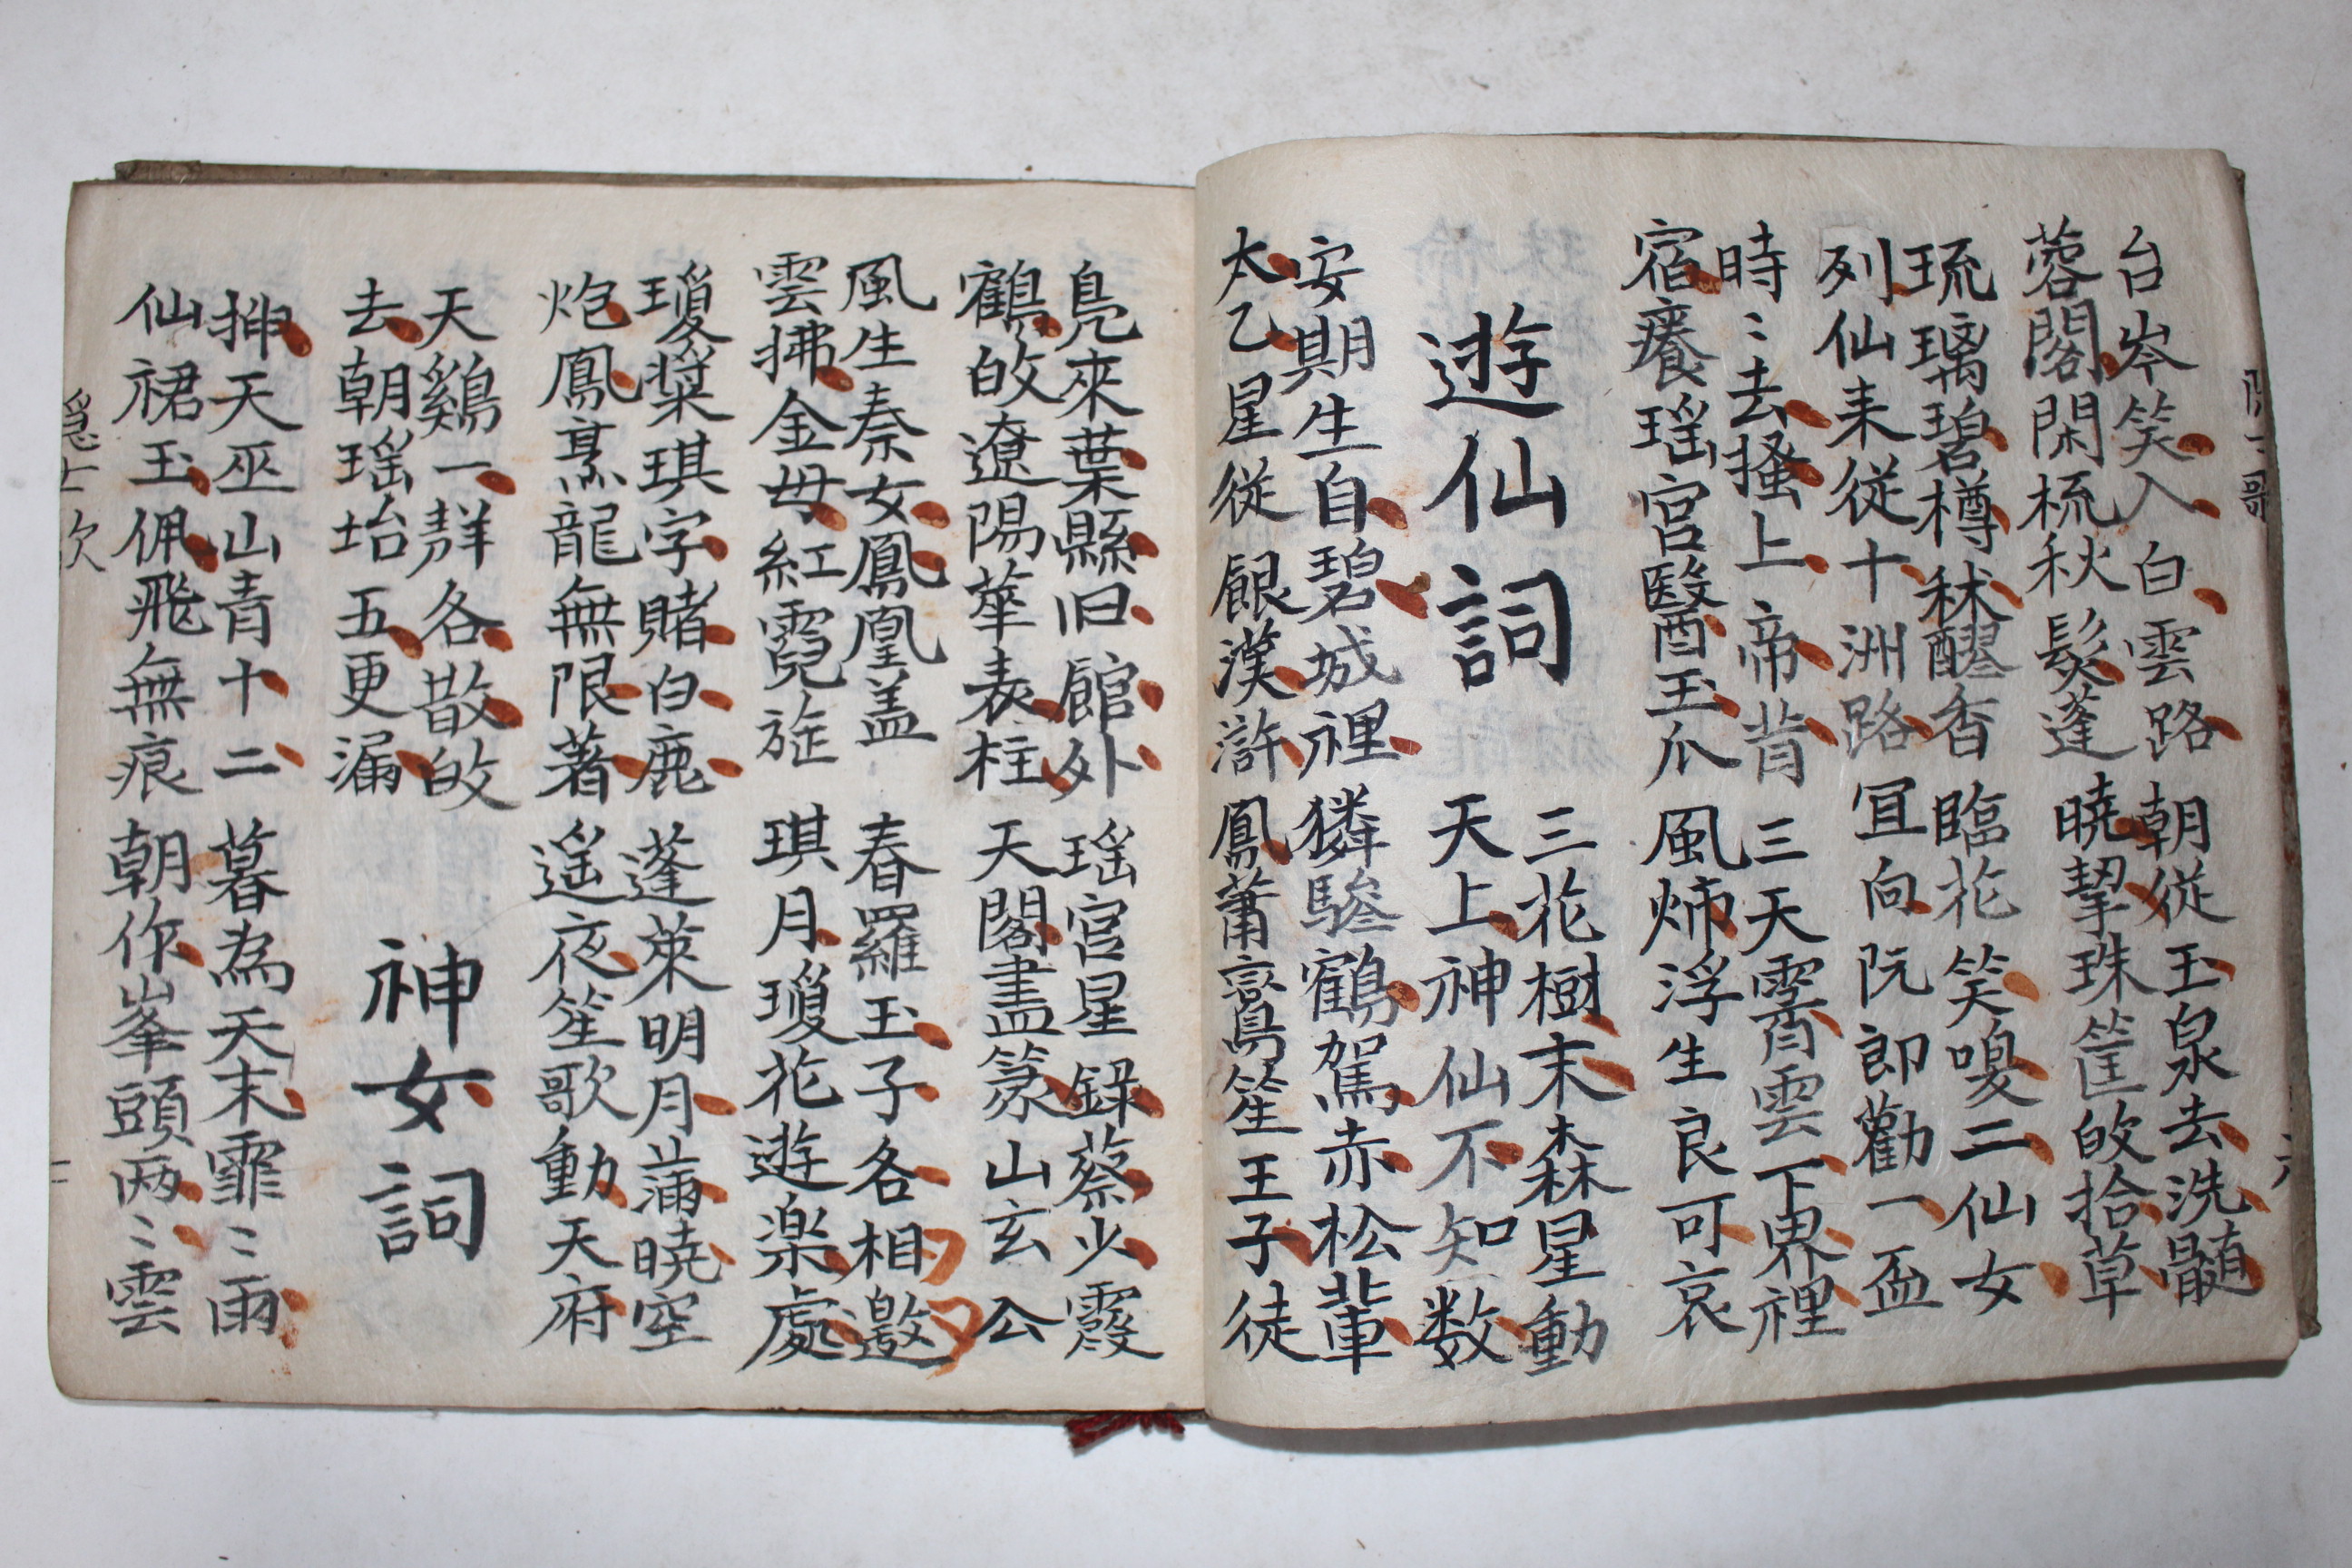 台岑笑入白雲路 朝從玉泉去洗髓
蓉閣閑梳秋鬂蓬 曉挈珠筐皈拾草
琉璃碧樽秫醪香 臨花笑嗄二仙女
列仙来從十洲路 冝向阮郎勸一盃
時〻去搔上帝背 三天霄雲下界裡
宿癢瑶宮醫玉爪 風浮生良可哀
遊仙詞
三花樹末森星動
天上神仙不知数
安期生自碧城裡 獜驂鶴駕赤松輩
太乙星從銀漢滸 鳳蕭鸞笙王子徒
鳬來葉縣旧館外 瑶宮星錄蔡少霞
鶴皈遼陽華表柱 天閣畫篆山玄公
風生秦女鳳凰盖 春羅玉子各相邀
雲拂金母紅霓旌 琪月瓊花遊楽處
瓊漿琪字賭白鹿 蓬萊明月滿曉空
炮鳳烹龍無限著 遥夜笙歌動天府
天鷄一群各散皈
去朝瑶坮五更漏
神女詞
挿天巫山青十二 暮為天末霏〻雨
仙裙玉佩飛無痕 朝作峯頭两〻雲